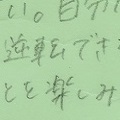 い。自分の
逆転でき
とを楽しみ